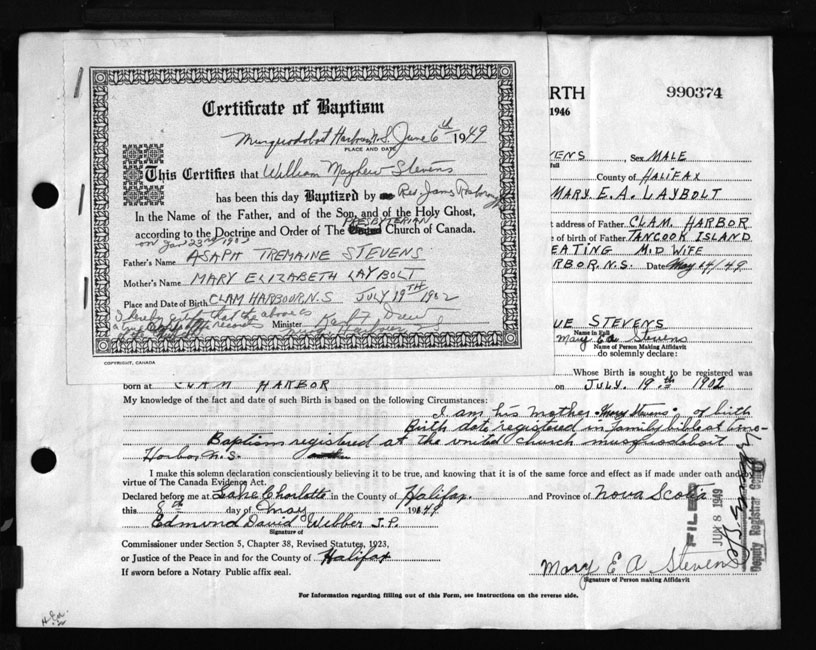 Certificate of Baptism
Musquodoboit Harbour N.S. June 6th 1949
PLACE AND DATE
This Certifies that William Mayhew Stevens
has been this day Baptized by Rev James
In the Name of the Father, and of the Son, and of the Holy Ghost,
PRESBYTERIAN
according to the Doctrine and Order of The United Church of Canada.
on Jan 23rd 1902
Father's Name ASAPH TREMAINE STEVENS
Mother's Name MARY ELIZABETH LAYBOLT
Place and Date of Birth CLAM HARBOUR, N.S JULY 19TH 1902
I hereby certify that the above is
a true of the records
Minister Drew
COPYRIGHT, CANADA
RTH
1946
990374
VENS, Sex MALE
full
County of HALIFAX
MARY. E. A. LAYBOLT
t address of Father CLAM. HARBOR
e of birth of Father TANCOOK ISLAND
EATING MID WIFE
RBOR. N.S. Date May 24/49
UE STEVENS
Name in Full
Mary Ea Stevens
Name of Person Making Affidavit
do solemnly declare:
Whose Birth is sought to be registered was
born at CLAM HARBOR on JULY. 19.th 1902
My knowledge of the fact and date of such Birth is based on the following Circumstances:
I am his mother. Mary Stevens. of birth
Birth date registered in family bible at time
Baptism registered at the united church musquodoboit
Harbor N.S.
I make this solemn declaration conscientiously believing it to be true, and knowing that it is of the same force and effect as if made under oath and by
virtue of The Canada Evidence Act.
Declared before me at Lake Charlotte in the County of Halifax. and Province of Nova Scotia
this 8th day of May 1949.
Edmind David Webber J.P.
Signature of
Commissioner under Section 5, Chapter 38, Revised Statutes, 1923,
or Justice of the Peace in and for the County of Halifax
If sworn before a Notary Public affix seal.
FILED
JUN 8 1949
Deputy Registrar General
Mary E A Stevens
Signature of Person making Affidavit
For Information regarding filling out of this Form, see Instructions on the reverse side.